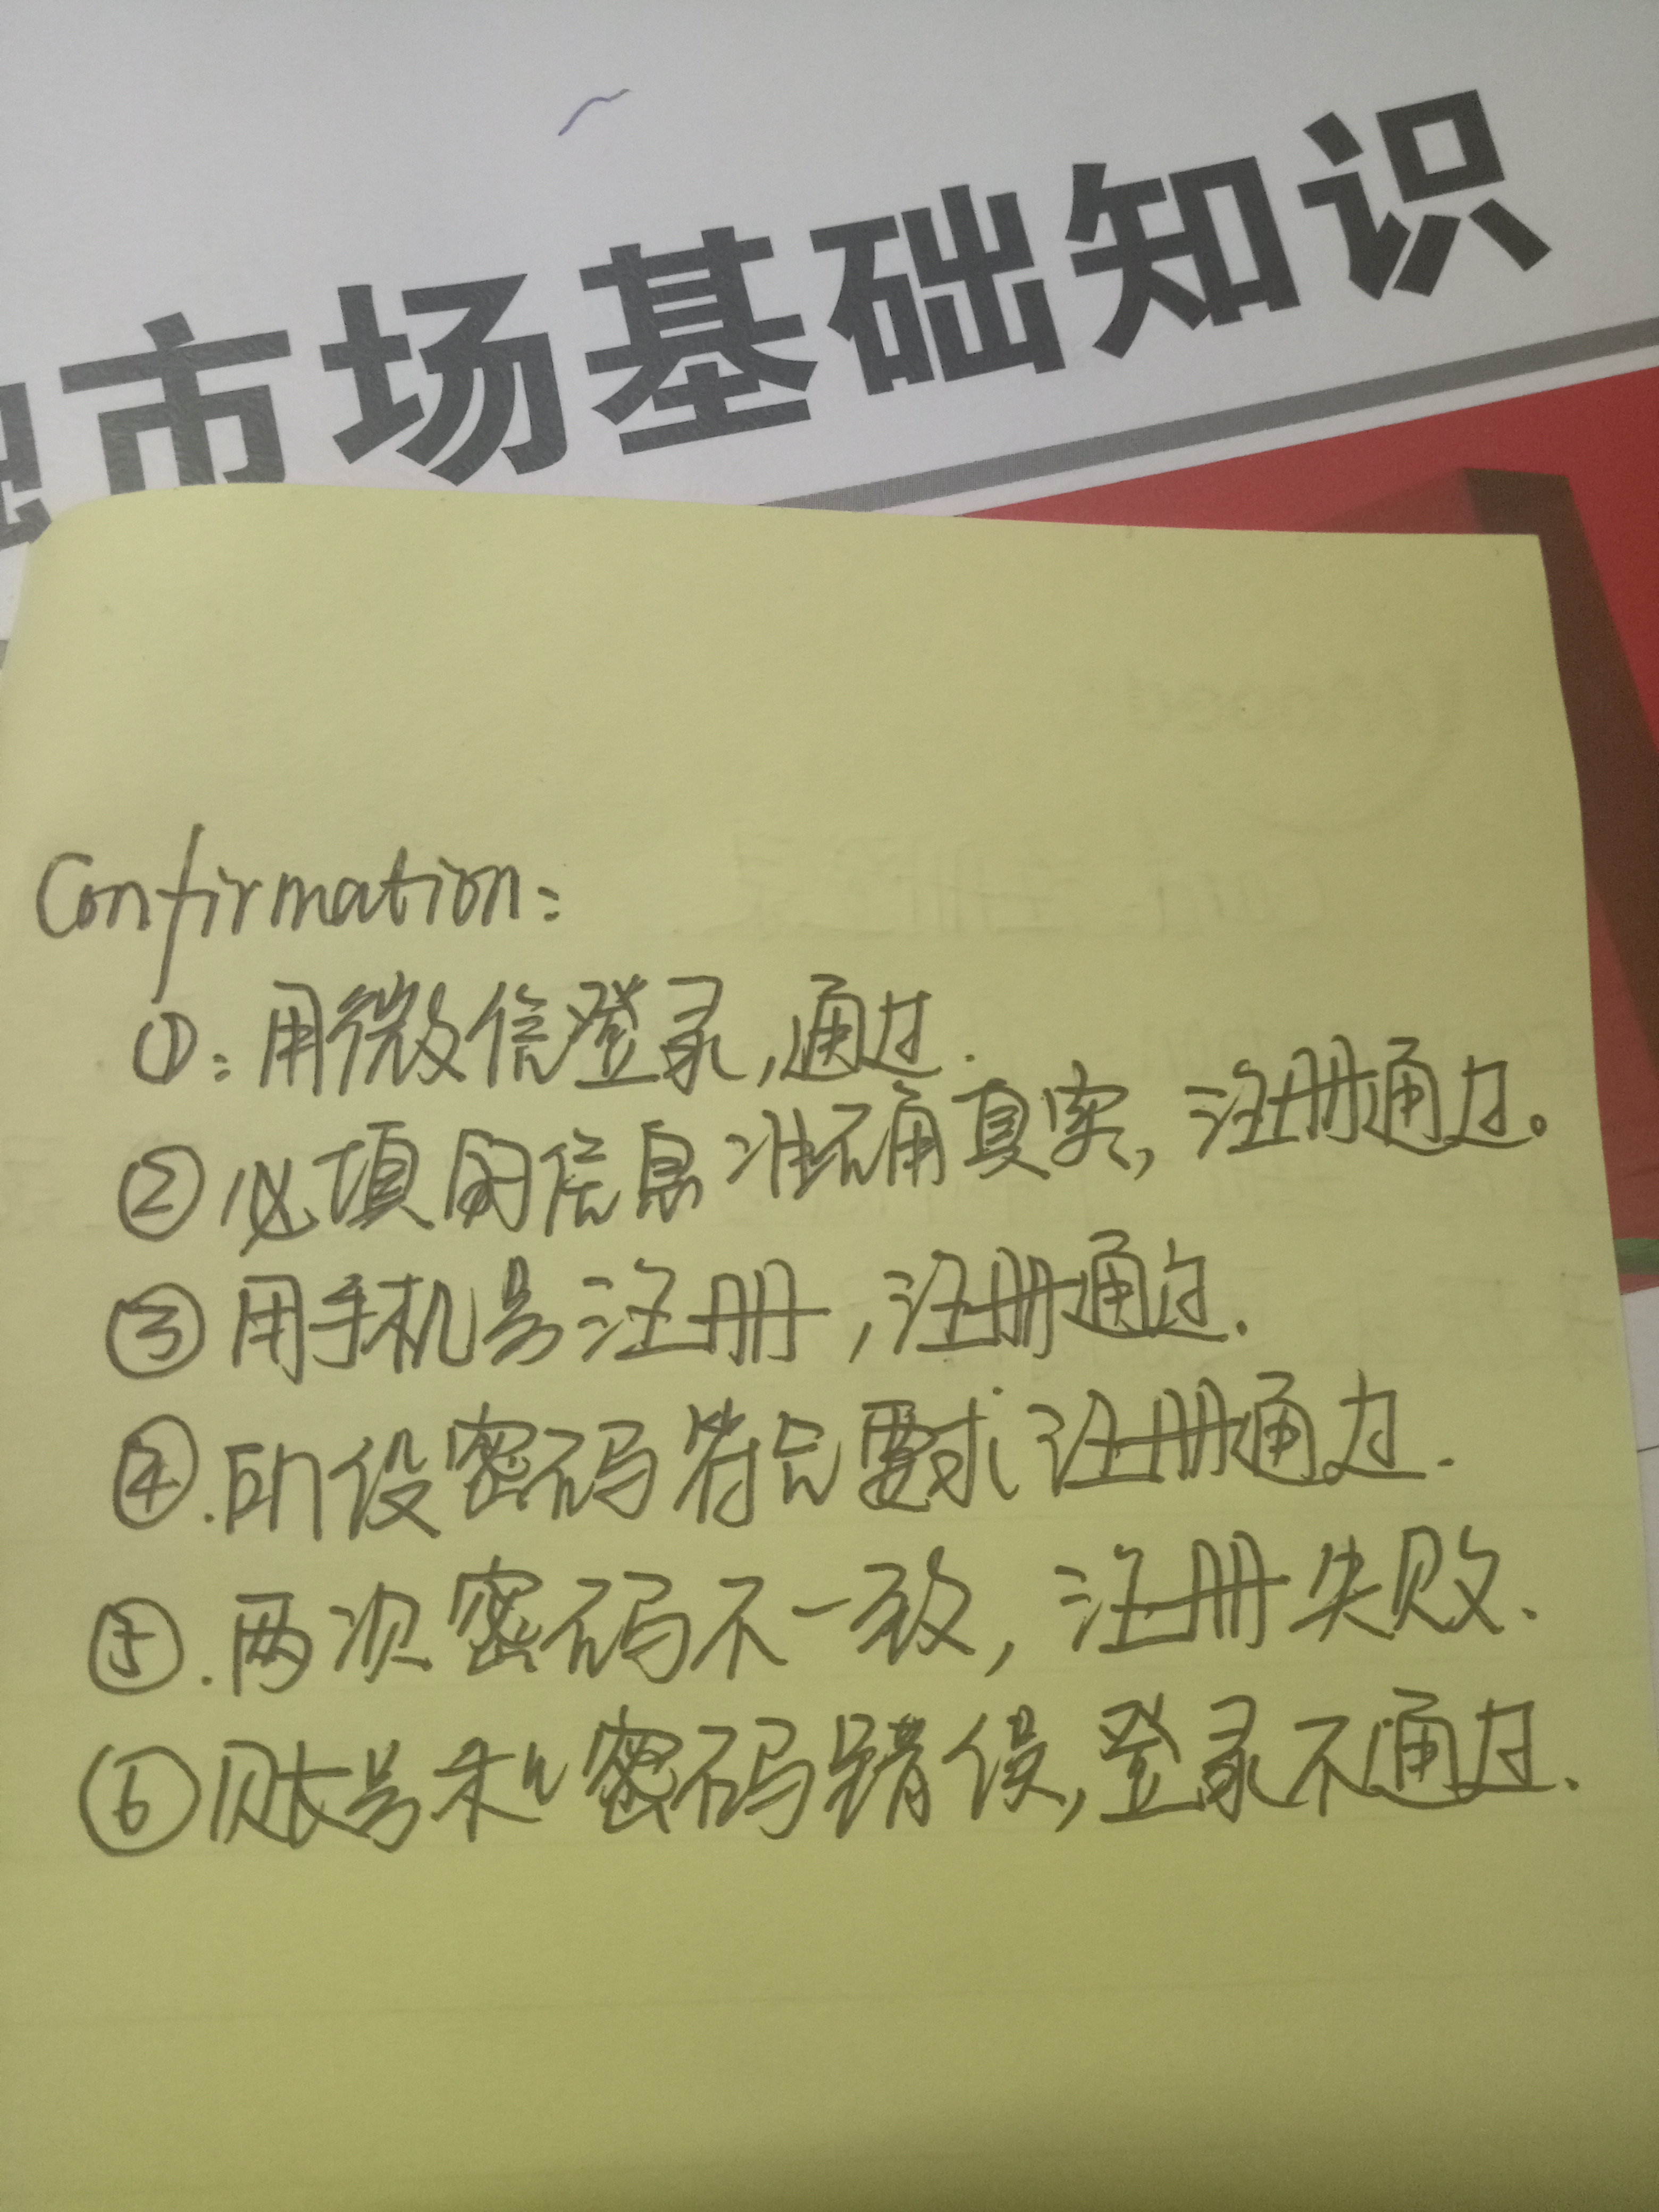 市场基础知识
Confirmation:
①:用微信登录,通过.
②必填的信息准确真实,注册通过。
③用手机号注册,注册通过.
④.所设密码符合要求注册通过.
⑤.两次密码不一致,注册失败.
⑥账号和密码错误,登录不通过.